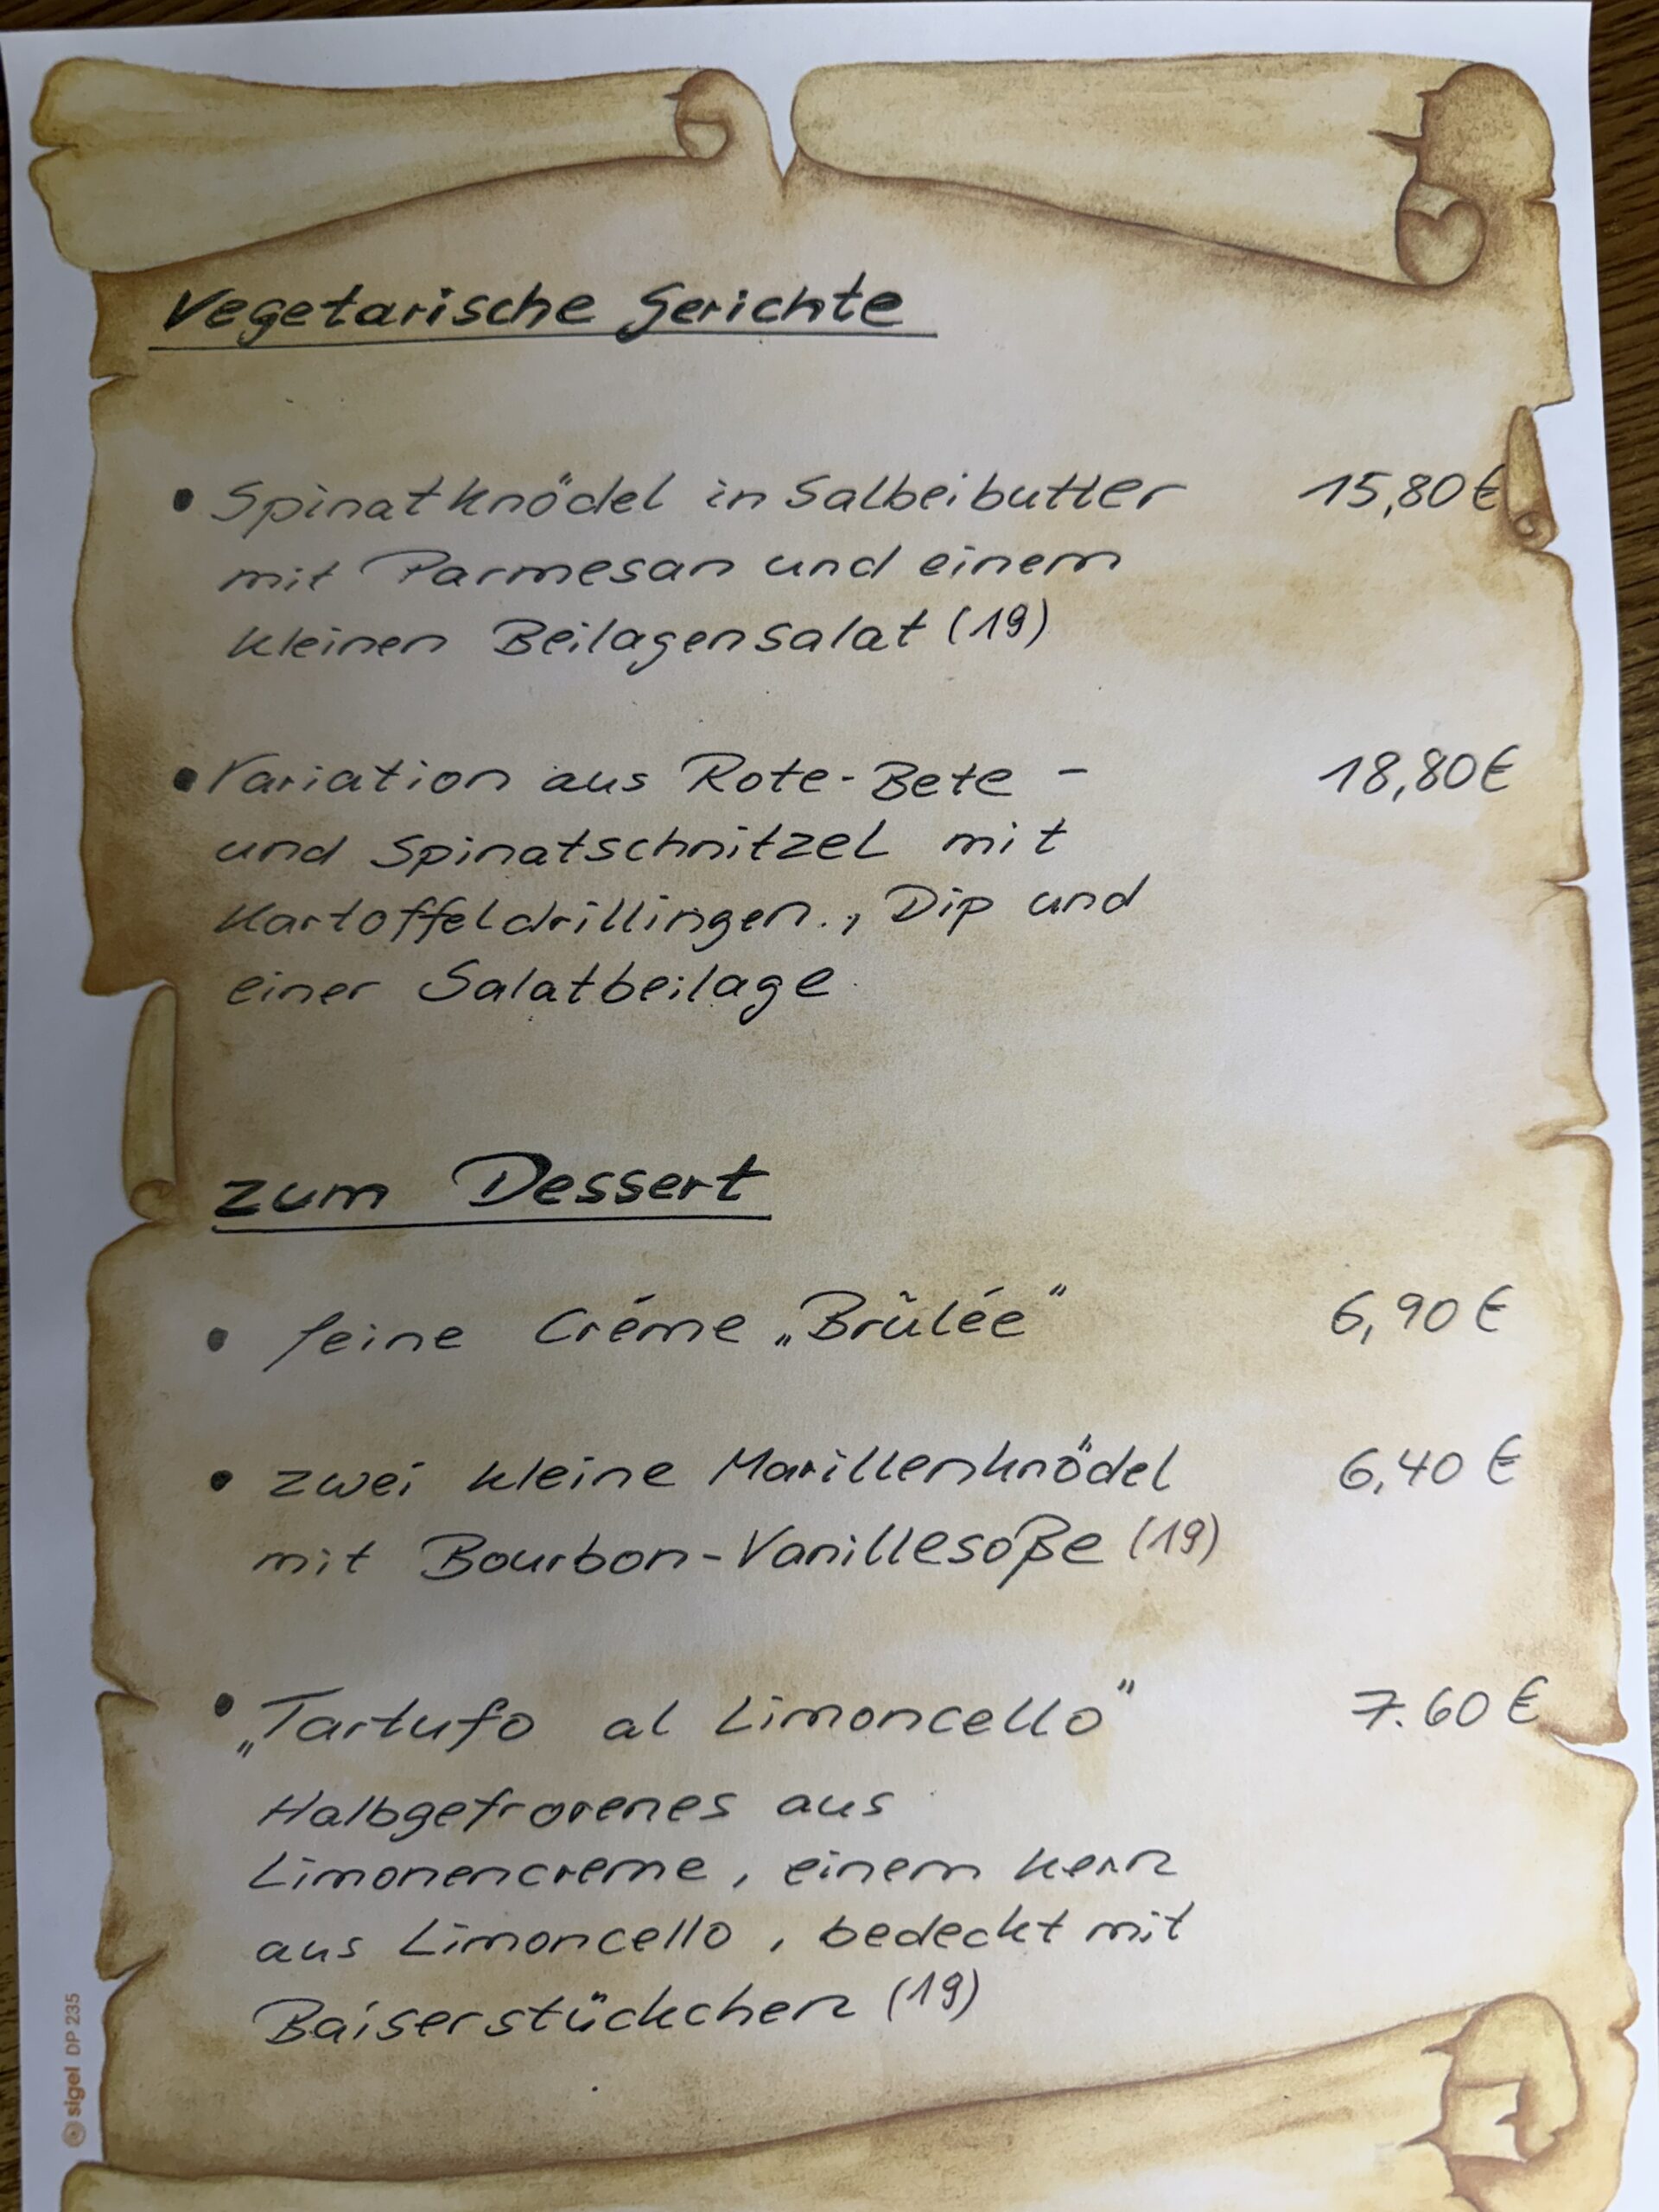 Vegetarische Gerichte
• Spinatknödel in Salbeibutter 15,80€
mit Parmesan und einem
kleinen Beilagensalat (19)
• Variation aus Rote-Bete - 18,80€
und Spinatschnitzel mit
Kartoffeldrillingen., Dip und
einer Salatbeilage
zum Dessert
• feine Créme „Brûlée" 6,90 €
• zwei kleine Marillenknödel 6,40 €
mit Bourbon-Vanillesoße (19)
• „Tartufo al Limoncello" 7.60 €
Halbgefrorenes aus
Limonencreme, einem Kern
aus Limoncello, bedeckt mit
Baiserstückchen (19)
sigel DP 235